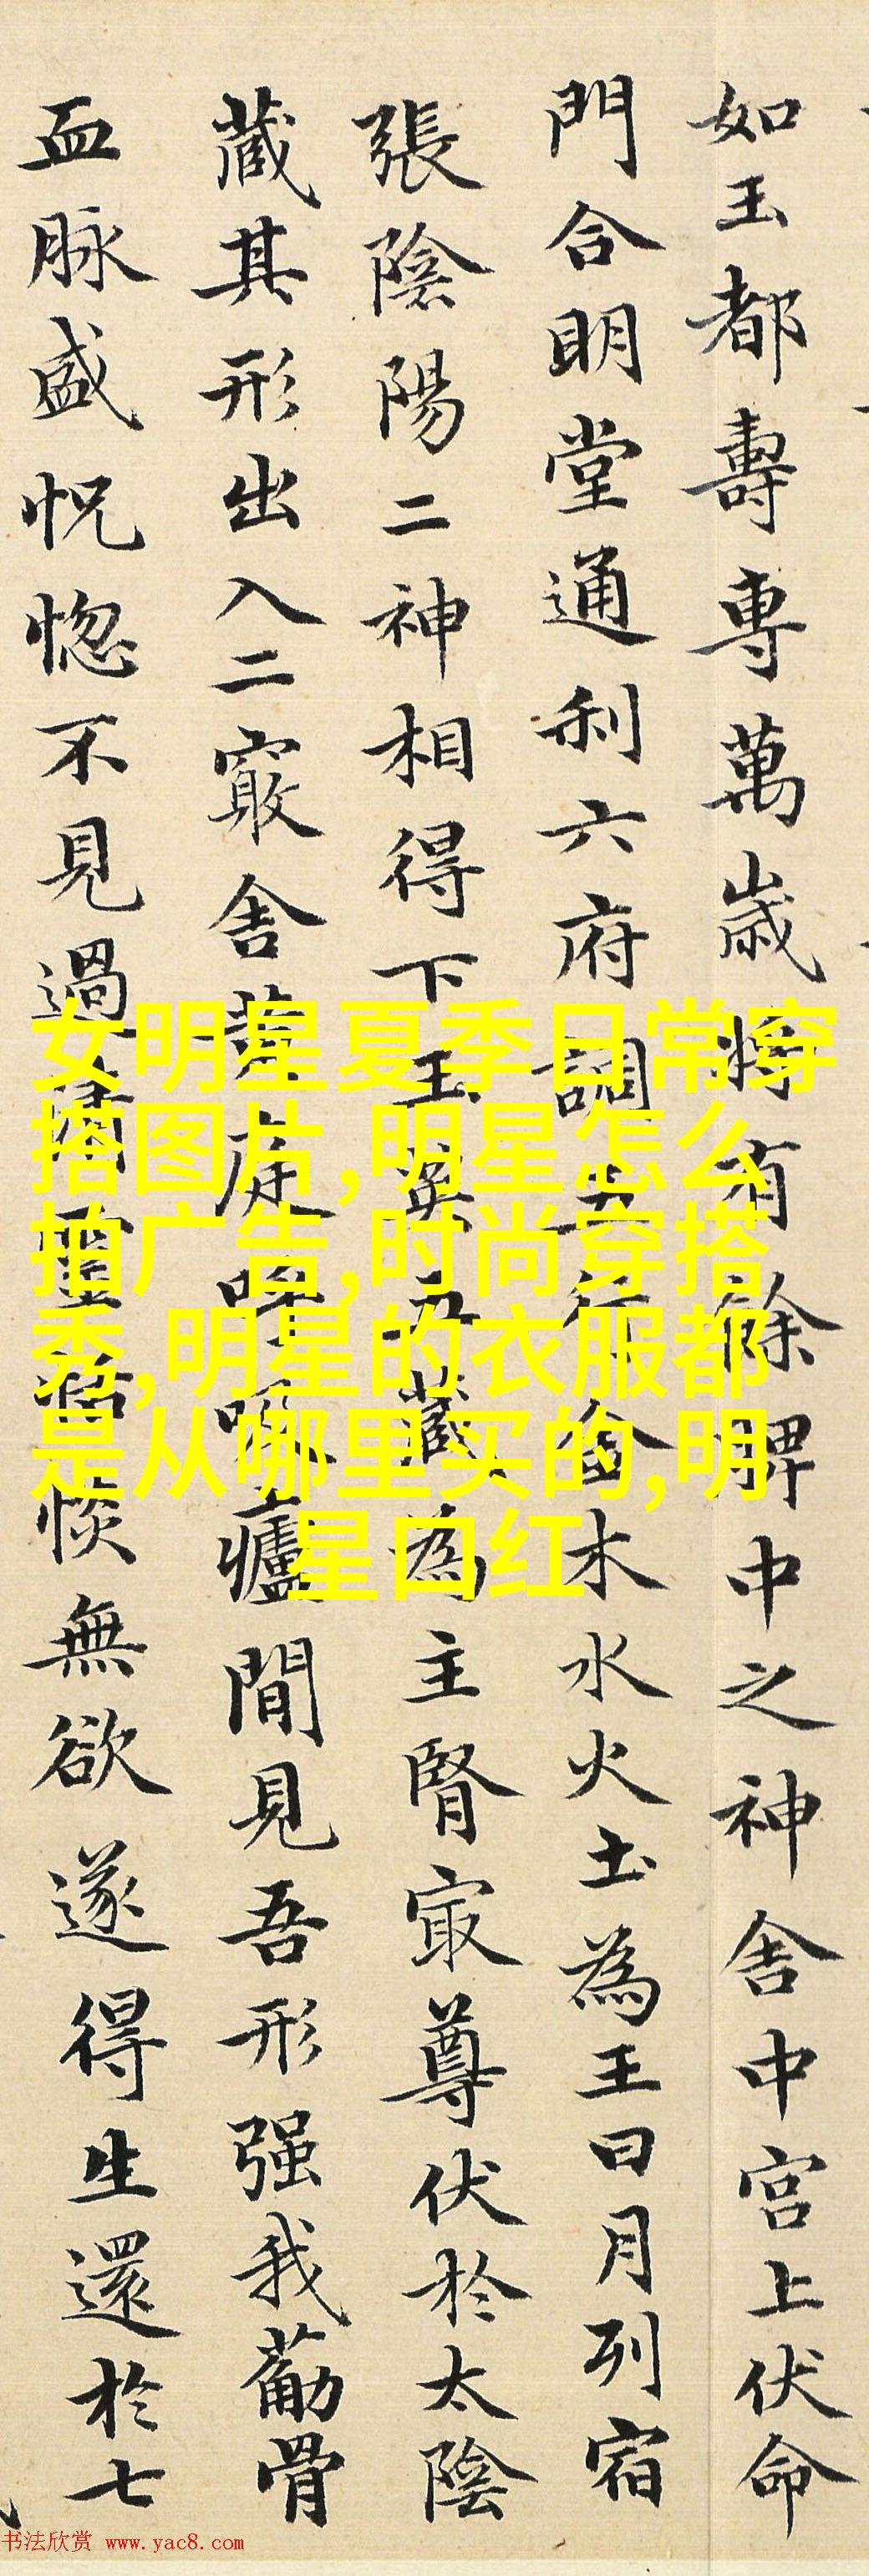 如玉都壽專萬歳將有餘脾中之神舍中宮上伏命
門合明堂通利六府調五行金木水火土為王日月列宿
張陰陽二神相得下玉英五藏為主腎寂尊伏於太陰
藏其形出入二竅舍黄庭呼吸廬間見吾形强我葡骨
血脉盛怳惚不見過清靈恬惔無欲遂得生還於七
女明星夏季日常穿
搭图片,明星怎么
拍广告,时尚穿搭
秀,明星的衣服都
是从哪里买的,明
星口红
书法欣赏 www.yac8.com